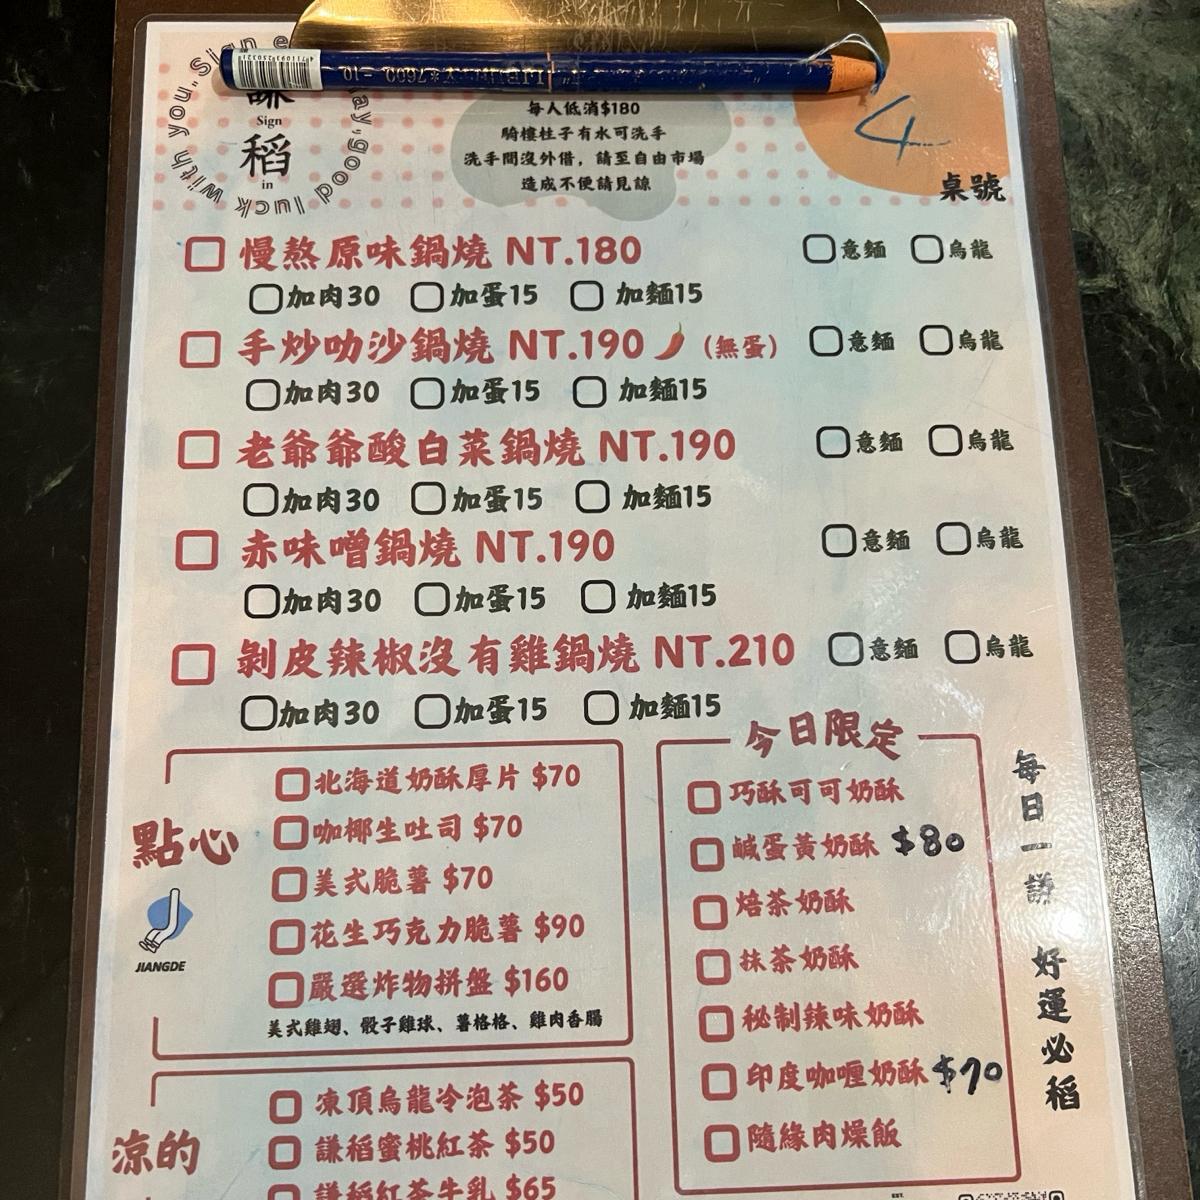 Sign
稻
in
good luck with you.
每人低消$180
騎樓柱子有水可洗手
洗手間沒外借，請至自由市場
造成不便請見諒
4
桌號
慢熬原味鍋燒 NT.180 意麵 烏龍
加肉30 加蛋15 加麵15
手炒叻沙鍋燒 NT.190 (無蛋) 意麵 烏龍
加肉30 加蛋15 加麵15
老爺爺酸白菜鍋燒 NT.190 意麵 烏龍
加肉30 加蛋15 加麵15
赤味噌鍋燒 NT.190 意麵 烏龍
加肉30 加蛋15 加麵15
剝皮辣椒沒有雞鍋燒 NT.210 意麵 烏龍
加肉30 加蛋15 加麵15
點心
JIANGDE
北海道奶酥厚片 $70
咖椰生吐司 $70
美式脆薯 $70
花生巧克力脆薯 $90
嚴選炸物拼盤 $160
美式雞翅、骰子雞球、薯格格、雞肉香腸
今日限定
巧酥可可奶酥
鹹蛋黃奶酥 $80
焙茶奶酥
抹茶奶酥
秘制辣味奶酥
印度咖喱奶酥 $70
隨緣肉燥飯
每日一謙 好運必稻
涼的
凍頂烏龍冷泡茶 $50
謙稻蜜桃紅茶 $50
謙稻紅茶牛乳 $65